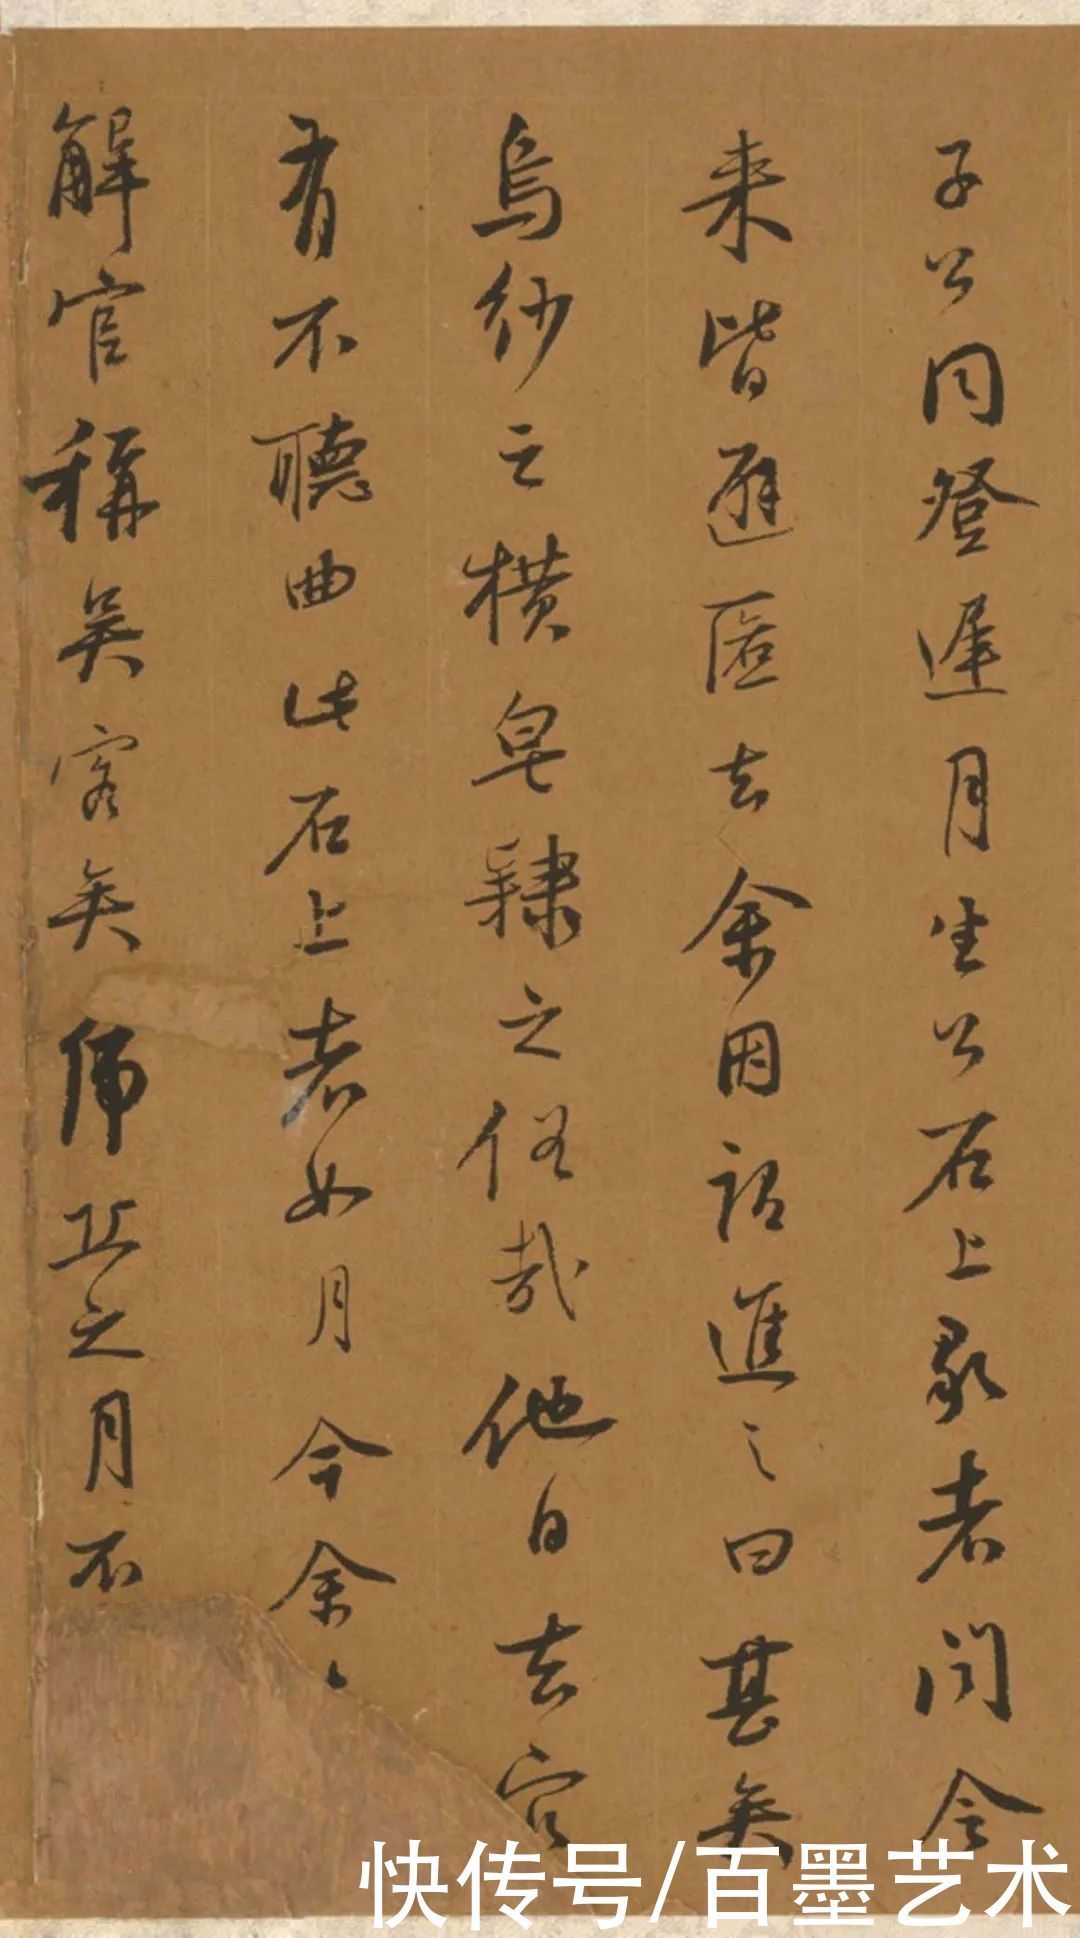 子公同登遲月生公石上歌者聞令
来皆避匿去余因語進之曰甚矣
烏紗之橫皂隸之俗哉他日去官
有不聽曲此石上者如月今余
解官稱吳客矣虎丘之月不
快传号/百墨艺术